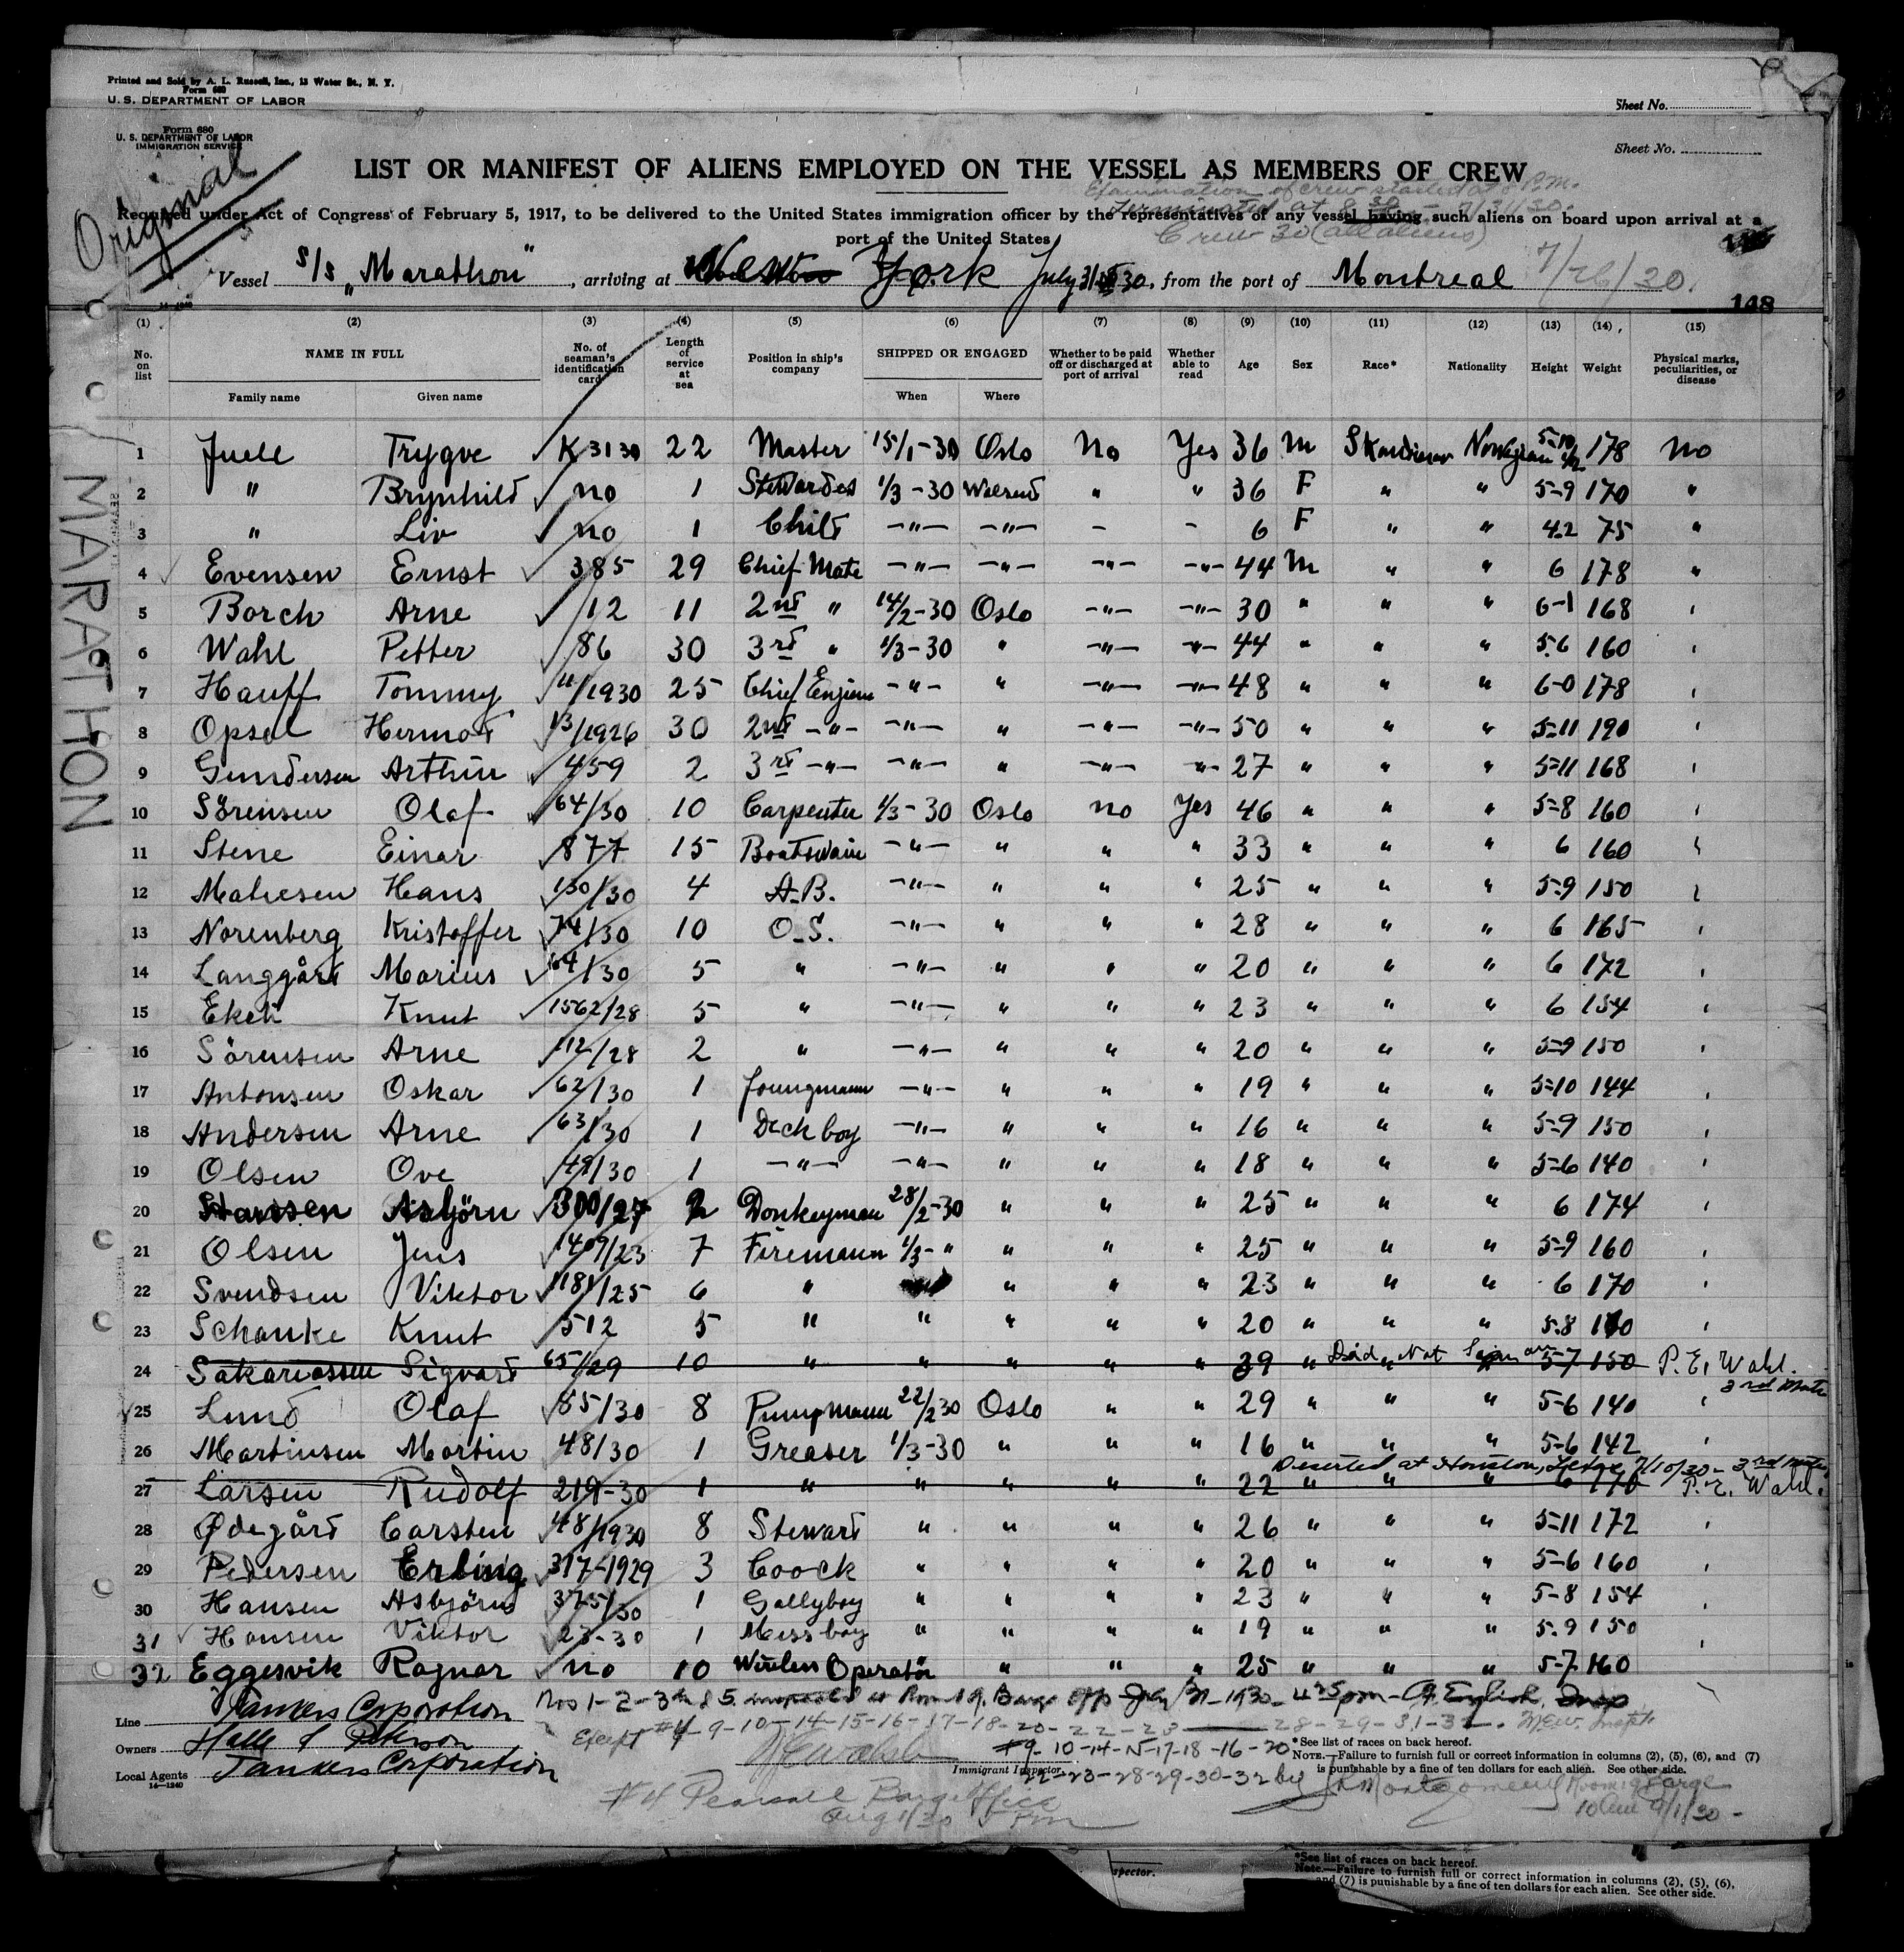 Printed and Sold by A. L. Russell, Inc., 13 Water St., N. Y.
Form 680
U. S. DEPARTMENT OF LABOR
Sheet No.
Form 680
U. S. DEPARTMENT OF LABOR
IMMIGRATION SERVICE
Sheet No.
Original
LIST OR MANIFEST OF ALIENS EMPLOYED ON THE VESSEL AS MEMBERS OF CREW
Examination of crew started at 8 P.M.
Terminated at 8 30 - 7/31/30.
Required under Act of Congress of February 5, 1917, to be delivered to the United States immigration officer by the representatives of any vessel having such aliens on board upon arrival at a
port of the United States
Crew 30 (all aliens)
Vessel S/S "Marathon", arriving at New York July 31 30, from the port of Montreal 7/26/30.
148
MARATHON
(1) (2) (3) (4) (5) (6) (7) (8) (9) (10) (11) (12) (13) (14) (15)
No. on list NAME IN FULL Family name Given name No. of seaman's identification card Length of service at sea Position in ship's company SHIPPED OR ENGAGED When Where Whether to be paid off or discharged at port of arrival Whether able to read Age Sex Race* Nationality Height Weight Physical marks, peculiarities, or disease
1 Juell Trygve K 3130 22 Master 15/1-30 Oslo No Yes 36 M Skandinav Norwegian 5-10 1/2 178 No
2 " Brynhild no 1 Stewardes 1/3-30 " " 36 F " " 5-9 170 "
3 " Liv no 1 Child -"- -"- - - 6 F " " 4.2 75 "
4 Evensen Ernst 385 29 Chief Mate -"- -"- -"- -"- 44 M " " 6 178 "
5 Borch Arne 12 11 2nd " 14/2-30 Oslo -"- -"- 30 " " " 6-1 168 "
6 Wahl Petter 86 30 3rd " 1/3-30 " -"- -"- 44 " " " 5.6 160 "
7 Hauff Tommy 11/1930 25 Chief Engineer -"- " -"- -"- 48 " " " 6-0 178 "
8 Opsal Hermod 13/1926 30 2nd -"- -"- " -"- -"- 50 " " " 5-11 190 "
9 Gundersen Arthur 459 2 3rd -"- -"- " -"- -"- 27 " " " 5-11 168 "
10 Sörensen Olaf 64/30 10 Carpenter 1/3-30 Oslo no Yes 46 " " " 5-8 160 "
11 Stene Einar 877 15 Boatswain -"- " " " 33 " " " 6 160 "
12 Hans 130/30 4 A.B. -"- " " " 25 " " " 5-9 150 "
13 Norenberg Kristoffer 74/30 10 O.S. -"- " " " 28 " " " 6 165 "
14 Langgård Marius 64/30 5 " -"- " " " 20 " " " 6 172 "
15 Knut 1562/28 5 " -"- " " " 23 " " " 6 154 "
16 Sörensen Arne 112/28 2 " -"- " " " 20 " " " 5-9 150 "
17 Antonsen Oskar 62/30 1 Joungmann -"- " " " 19 " " " 5-10 144 "
18 Andersen Arne 63/30 1 Deck boy -"- " " " 16 " " " 5-9 150 "
19 Olsen Ove 49/30 1 -"- -"- " " " 18 " " " 5-6 140 "
20 Hansen Asbjörn 300/27 2 Donkeyman 28/2-30 " " " 25 " " " 6 174 "
21 Olsen Jens 1409/23 7 Firemann 1/3-" " " " 25 " " " 5-9 160 "
22 Svendsen Viktor 1181/25 6 " " " " 23 " " " 6 170 "
23 Schanke Knut 512 5 " " " " " 20 " " " 5.8 "
24 Sakariassen Sigvard 65/29 10 " " " " " 39 " Did Not Sign on 5-7 150 P. E. Wahl. 3rd Mate
25 Lund Olaf 85/30 8 Pumpmann 22/2 30 Oslo " " 29 " " " 5-6 140 "
26 Martinsen Martin 48/30 1 Greaser 1/3-30 " " " 16 " " " 5-6 142 "
Deserted at Houston, Texas 7/10/30 - 3rd Mate
27 Larsen Rudolf 219-30 1 " " " " " 22 " " " 6 170 P. E. Wahl.
28 Ødegård Carsten 48/1930 8 Steward " " " " 26 " " " 5-11 172 "
29 Pedersen Erling 317-1929 3 Coock " " " " 20 " " " 5-6 160 "
30 Hansen Asbjörn 375/30 1 Gallyboy " " " " 23 " " " 5-8 154 "
31 Hansen Viktor 23-30 1 Messboy " " " " 19 " " " 5.9 150 "
32 Eggesvik Ragnar no 10 Wireless Operatör " " " " 25 " " " 5-7 160
Nos 1-2-3 & 5 inspected at Room 19, Barge Off July 31-1930 4 35 pm
Line Tankers Corporation
Except #4 9-10-14-15-16-17-18-20-22-23 28-29-31-32.
Owners Halle & Peterson
#9-10-14-15-17-18-16-20
22-23-28-29-30-32 by Montgomery Room 19 Barge
10 am 9/1/30
Local Agents Tankers Corporation
14-1240
Immigrant Inspector.
*See list of races on back hereof.
NOTE.—Failure to furnish full or correct information in columns (2), (5), (6), and (7)
is punishable by a fine of ten dollars for each alien. See other side.
#4 Pearsall Barge Office
Aug 1/30 5 PM
spector.
*See list of races on back hereof.
Note.—Failure to furnish full or correct information in columns (2), (5), (6),
and (7) is punishable by a fine of ten dollars for each alien. See other side.